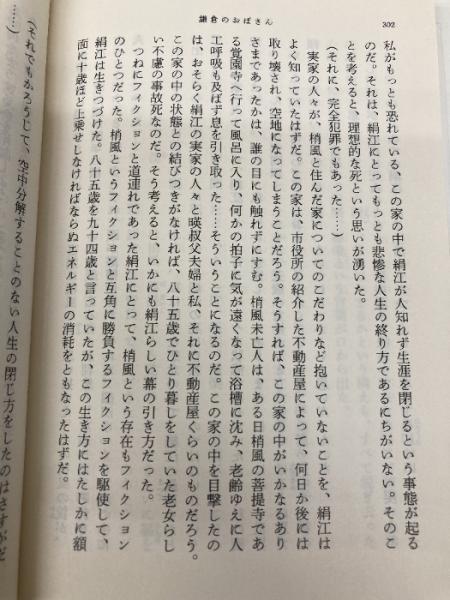 鎌倉のおばさん
302
私がもっとも恐れている、この家の中で絹江が人知れず生涯を閉じるという事態が起る
のだ。それは、絹江にとってもっとも悲惨な人生の終り方であるにちがいない。そのこ
とを考えると、理想的な死という思いが湧いた。
(それに、完全犯罪でもあった……)
実家の人々が、梢風と住んだ家についてのこだわりなど抱いていないことを、絹江は
よく知っていたはずだ。この家は、市役所の紹介した不動産屋によって、何日か後には
取り壊され、空地になってしまうことだろう。そうすれば、この家の中がいかなるあり
さまであったかは、誰の目にも触れずにすむ。梢風未亡人は、ある日梢風の菩提寺であ
る覚園寺へ行って風呂に入り、何かの拍子に気が遠くなって浴槽に沈み、老齢ゆえに人
工呼吸も及ばず息を引き取った……そういうことになるのだ。この家の中を目撃したの
は、おそらく絹江の実家の人々と暎叔父夫婦と私、それに不動産屋くらいのものだろう。
この家の中の状態との結びつきがなければ、八十五歳でひとり暮しをしていた老女らし
い不慮の事故死なのだ。そう考えると、いかにも絹江らしい幕の引き方だった。
つねにフィクションと道連れであった絹江にとって、梢風という存在もフィクション
のひとつだった。梢風というフィクションと互角に勝負するフィクションを駆使して、
絹江は生きつづけた。八十五歳を九十四歳と言っていたが、この生き方にはたしかに額
面に十歳ほど上乗せしなければならぬエネルギーの消耗をともなったはずだ。
(それでもかろうじて、空中分解することのない人生の閉じ方をしたのはさすがだ
……)